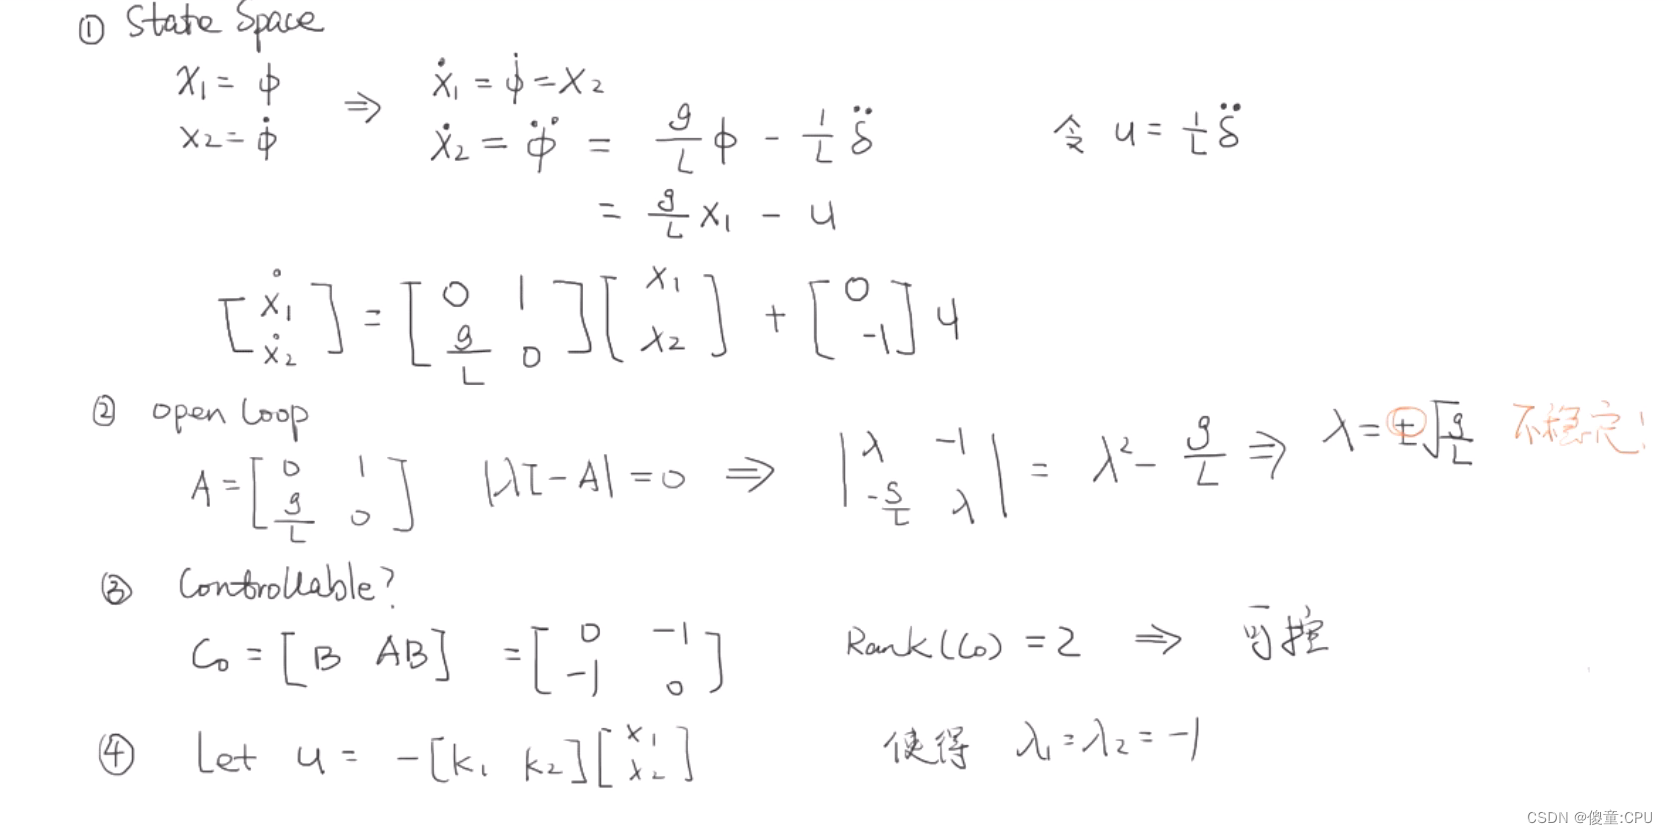 ① State Space
x₁ = ϕ ⇒ ẋ₁ = ϕ̇ = x₂
x₂ = ϕ̇ ẋ₂ = ϕ̈ = g/L ϕ - 1/L δ̈ 令 u = 1/L δ̈
= g/L x₁ - u
[ẋ₁ ẋ₂] = [0 1 g/L 0][x₁ x₂] + [0 -1] u
② open loop
A = [0 1 g/L 0] |λI - A| = 0 ⇒ |λ -1 -g/L λ| = λ² - g/L ⇒ λ = ±√g/L 不稳定!
③ Controllable?
C₀ = [B AB] = [0 -1 -1 0] Rank(C₀) = 2 ⇒ 可控
④ Let u = -[k₁ k₂][x₁ x₂] 使得 λ₁ = λ₂ = -1
CSDN @傻童:CPU